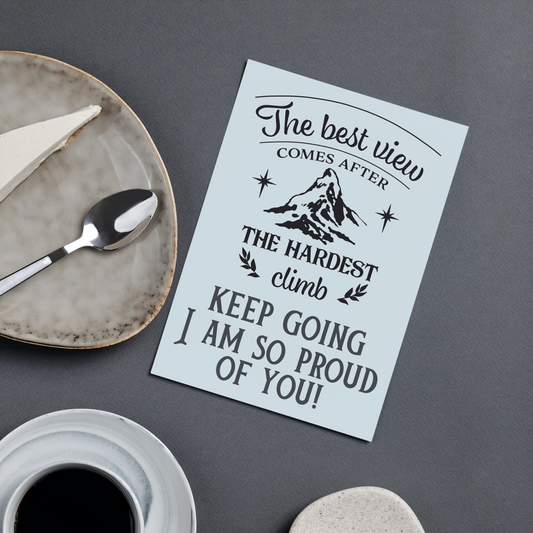 The best view
COMES AFTER
THE HARDEST
climb
KEEP GOING
I AM SO PROUD
OF YOU!